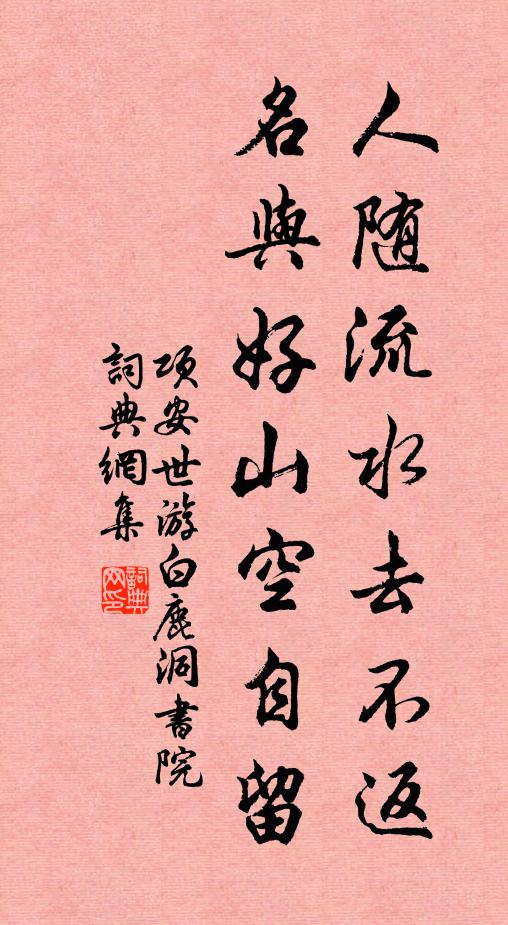 人随流水去不返
名與好山空自留
项安世游白鹿洞書院
詞典網集
詞典网印